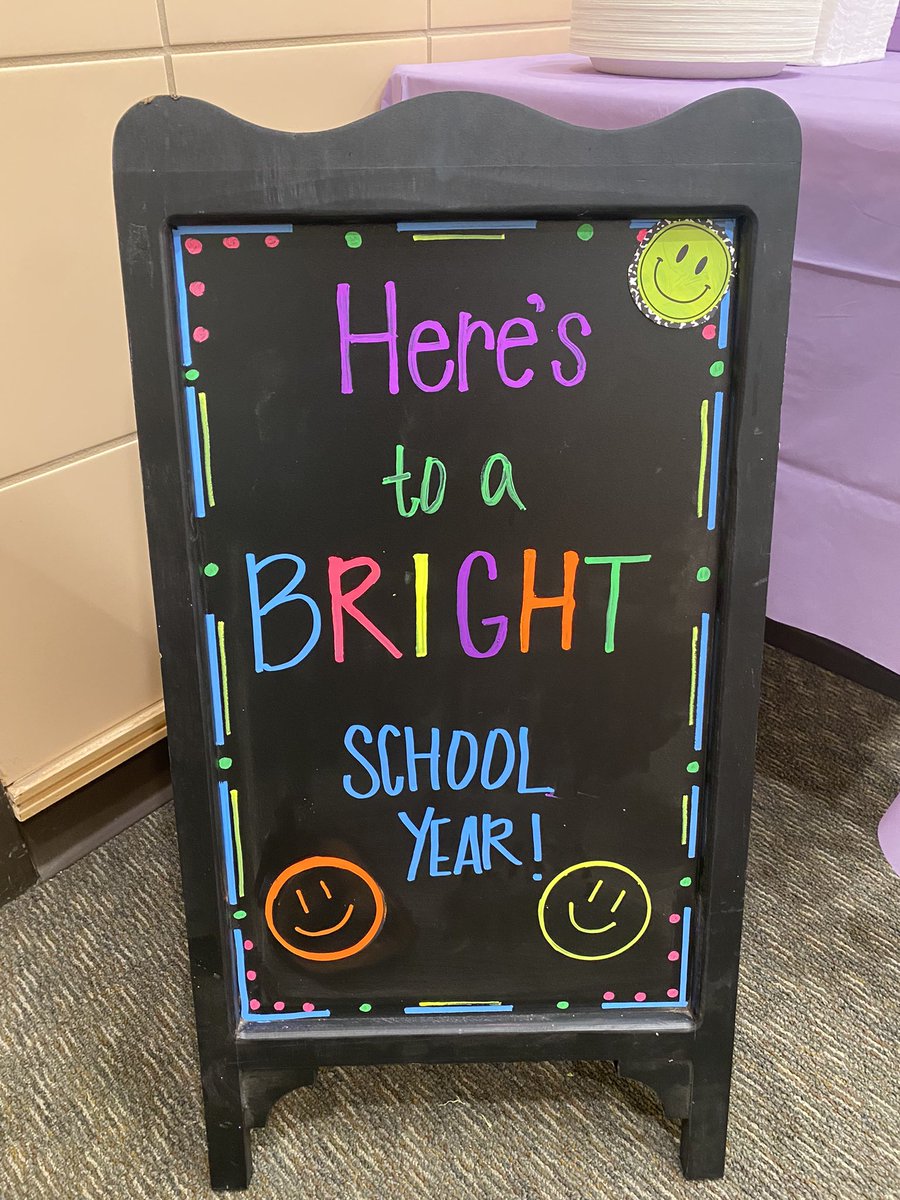 Here's
to a
BRIGHT
SCHOOL
YEAR!